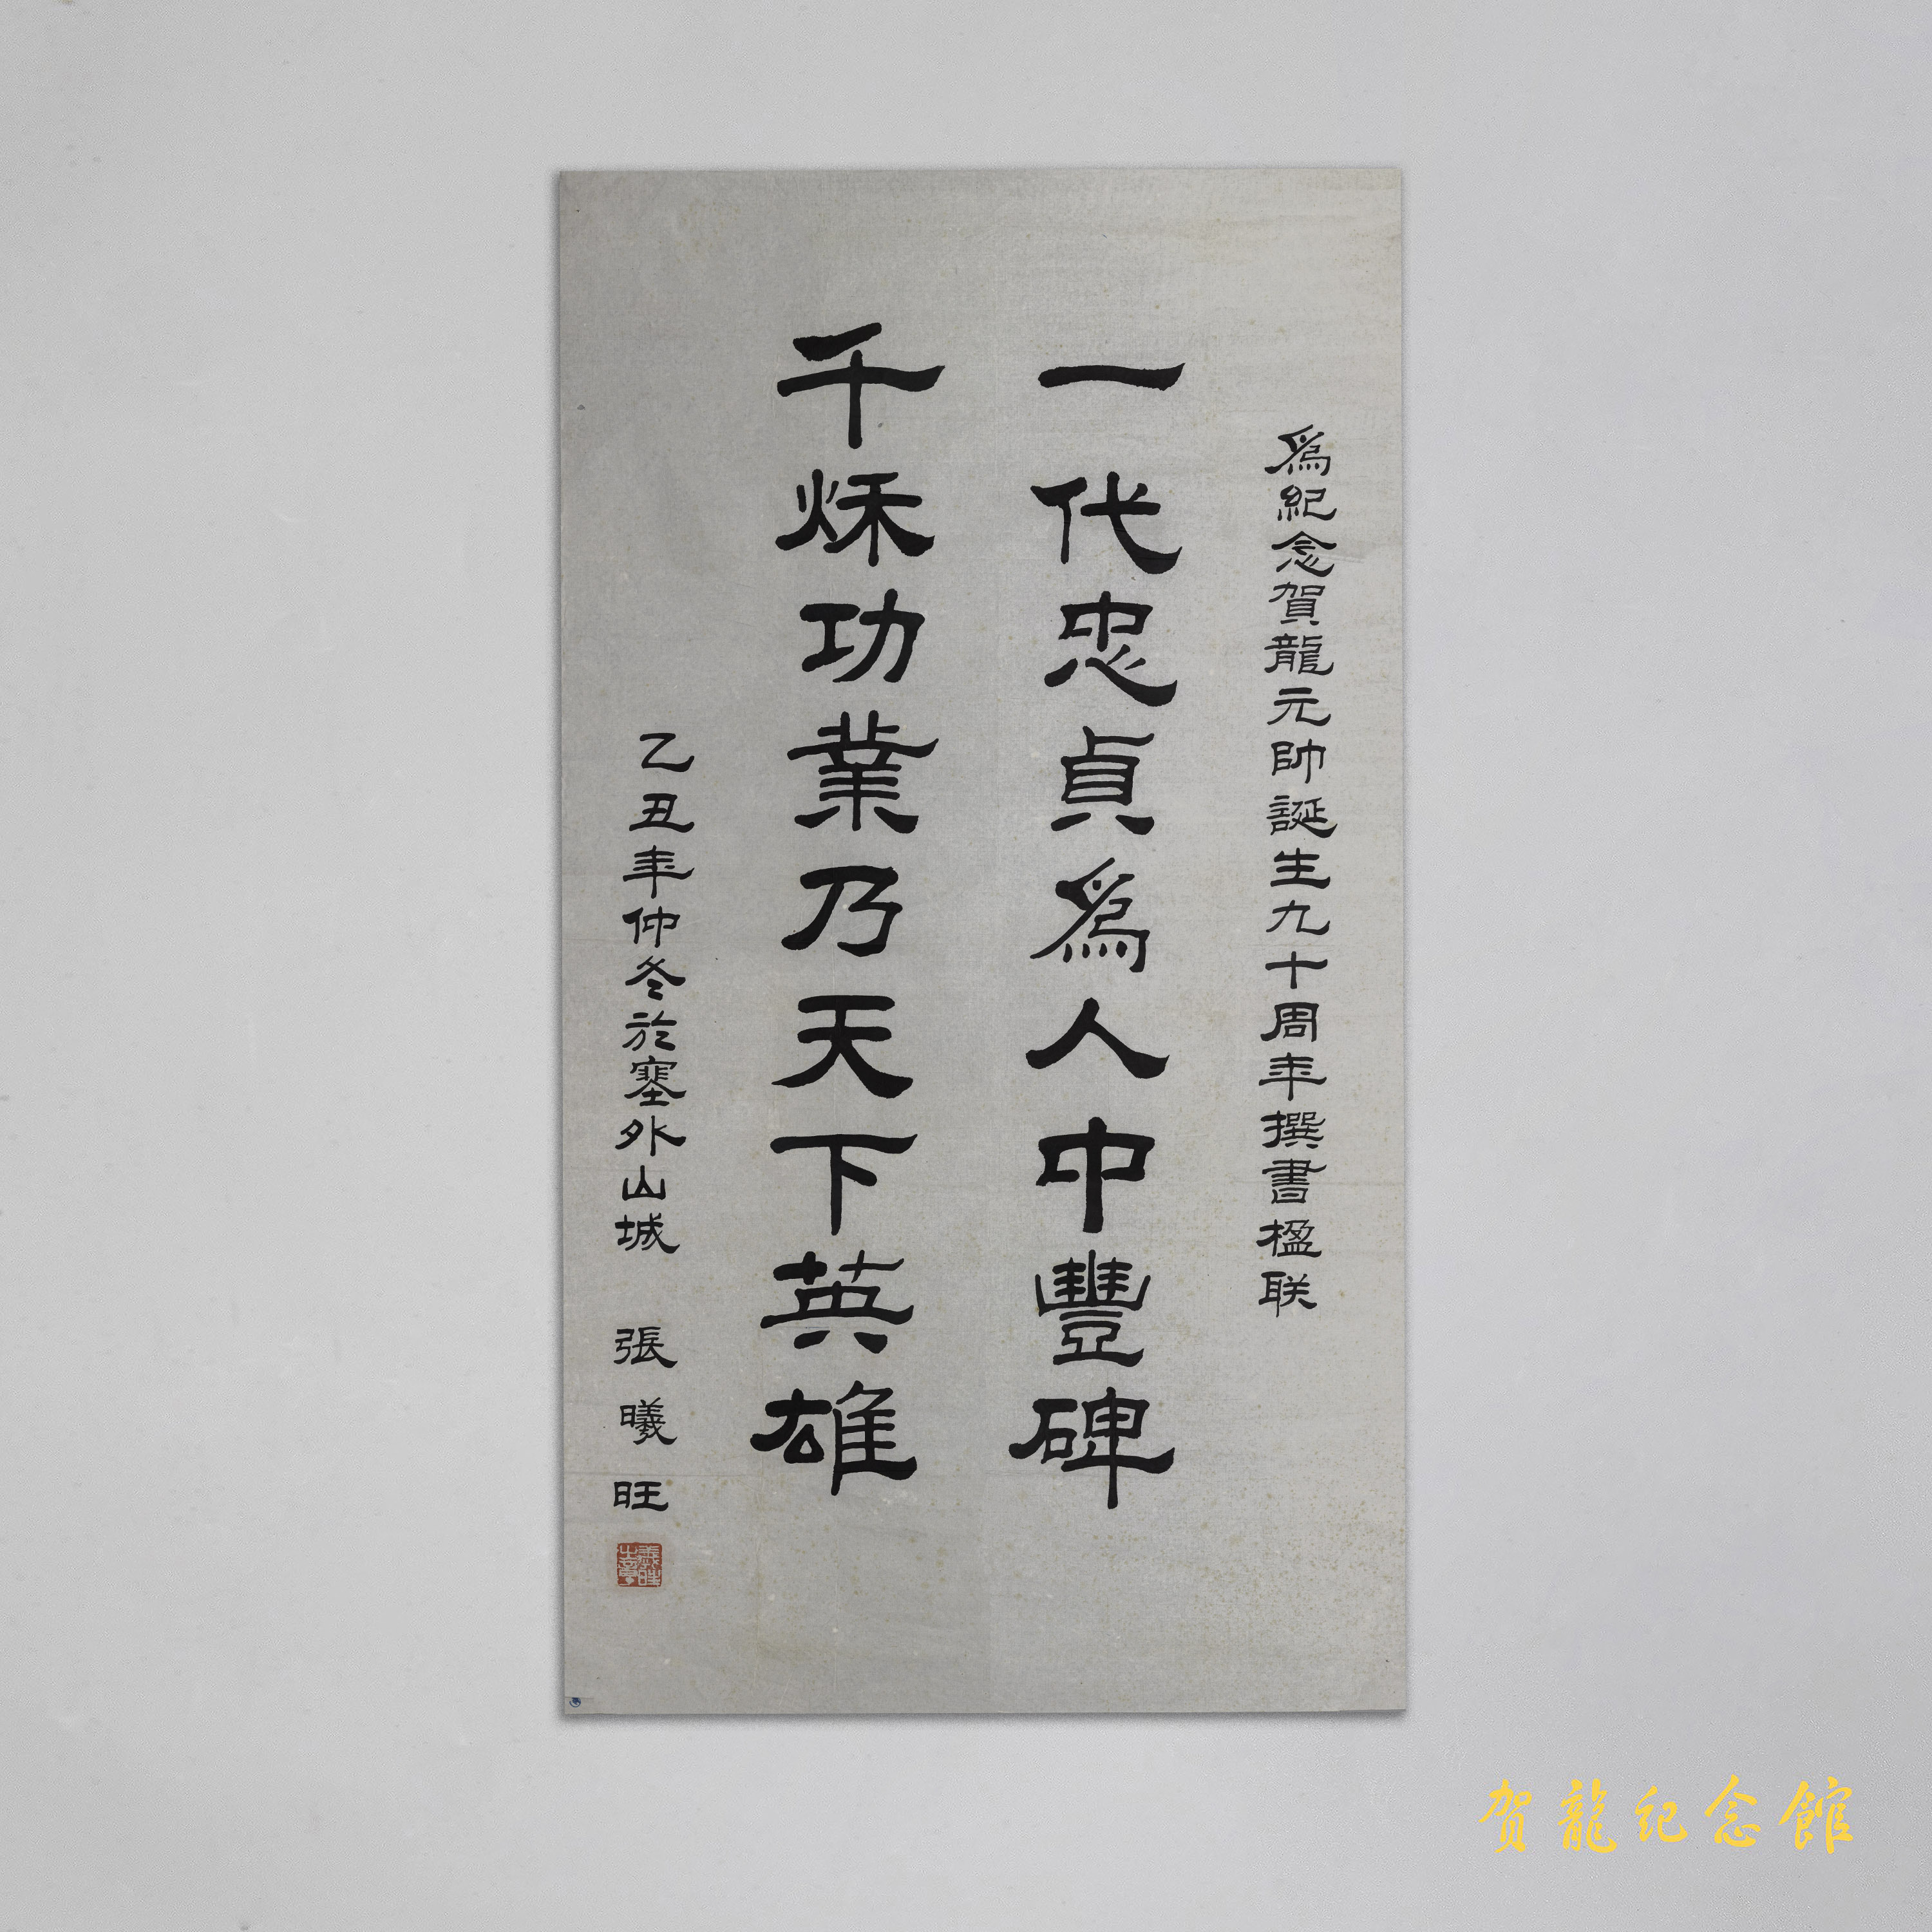 為紀念賀龍元帥誕生九十周年撰書楹联
一代忠貞為人中豐碑
千秌功業乃天下英雄
乙丑年仲冬於塞外山城 張曦旺
賀龍纪念館